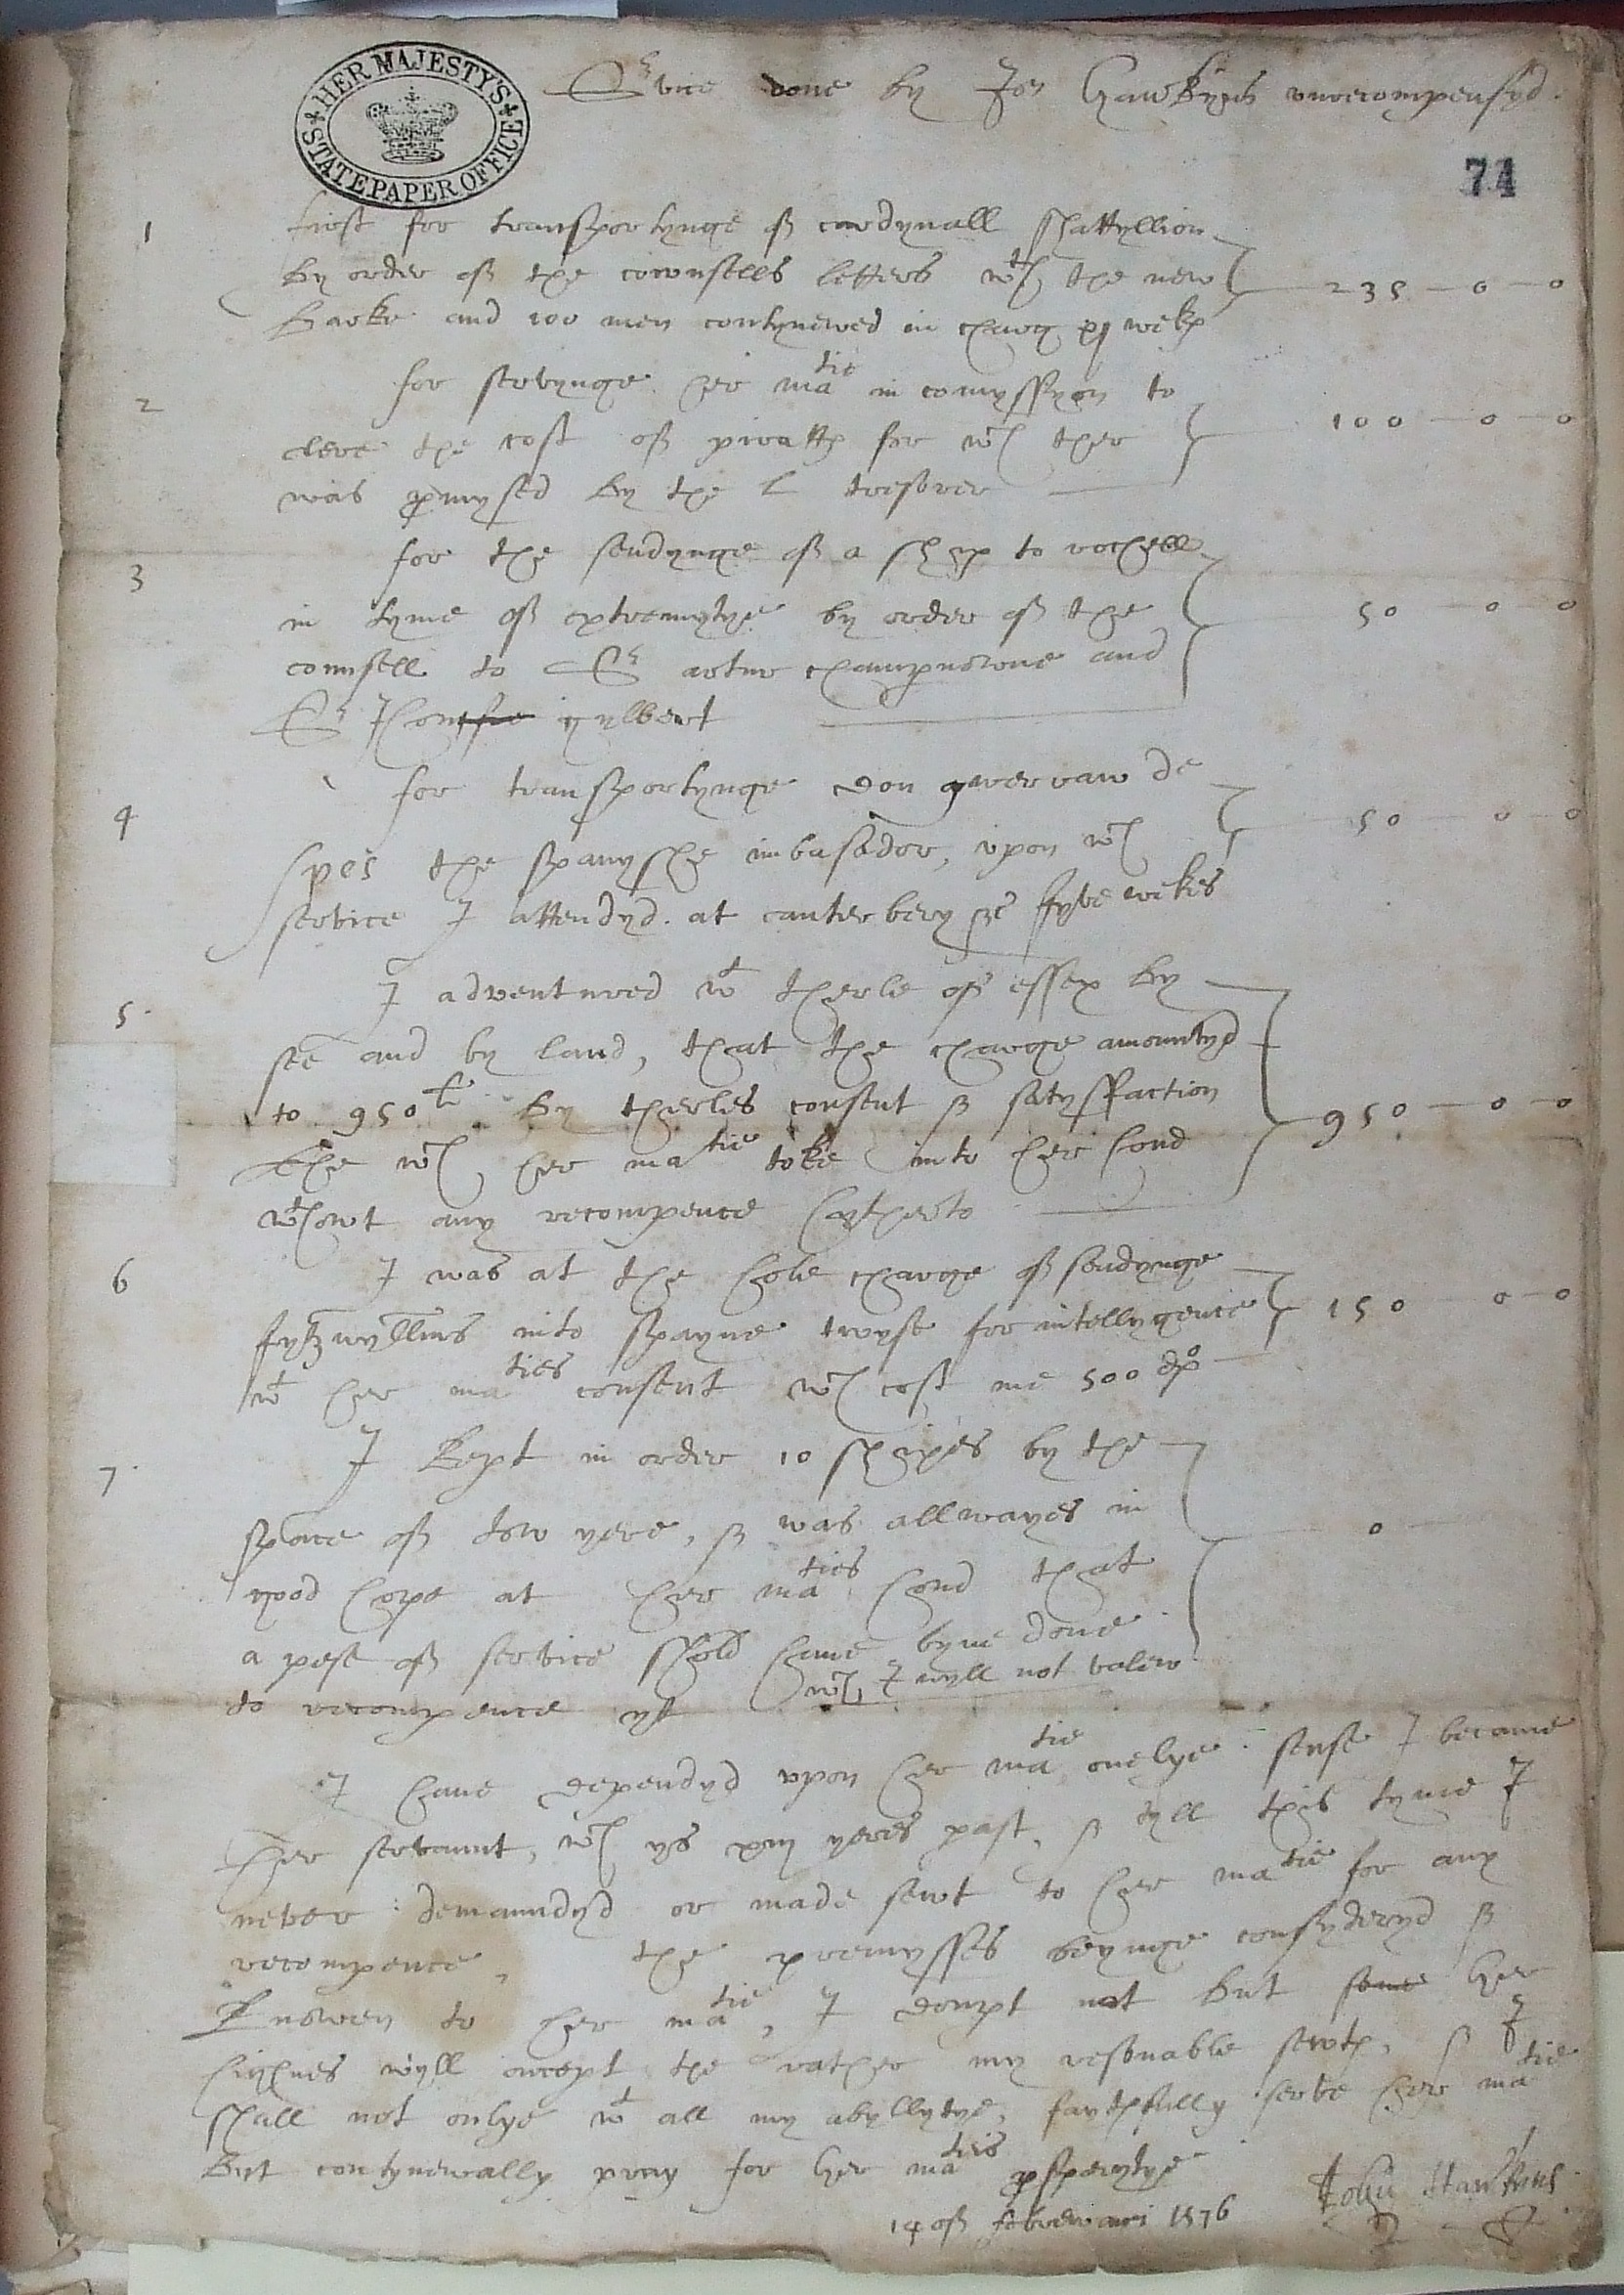 HER MAJESTY'S
STATE PAPER OFFICE
Svice done by Jon Hawkyns unrecompensyd.
74
1 First for transportynge of cardynall shattyllion
by order of the cownsells letters wth the new
barke and 100 men contynewed in charg xj wekes 235 — 0 — 0
2 for servynge her matie in comyssyon to
clere the cost of piratts for wch ther
was pmysed by the l tresorer 100 — 0 — 0
3 for the sendynge of a shyp to rochell
in tyme of extremytye by order of the
counsell to Sr artur champnowne and
Sr Homfre gylbert 50 — 0 — 0
4 for transportynge don gwerraw de
spes the spanyshe imbasador, upon wch
service I attendyd at canterbery etc fyve wekes 50 — 0 — 0
5. I adventured wt therle of essex by
see and by land, that the charge amountyd
to 950li by therles consent & satysffaction
the wch her matie toke into her hond
wthowt any recompence hytherto 950 — 0 — 0
6 I was at the hole charge of sendynge
fytzwyllms into spayne twyse for intellygence
wt her maties consent wch cost me 500 dp 150 — 0 — 0
7. I kept in order 10 shypes by the
space of tow yere, & was allwayes in
good hope at her maties hond that
a pese of service shold have byne done
to recompence yt wch I wyll not valew 0
I have dependyd upon her matie onelye sense I became
her servaunt, wch ys yeres past, & tyll this tyme I
never demaundyd or made sewt to her matie for any
recompence, the premysses beynge consyderyd &
knowen to her matie, I doupt not but some her
highnes wyll accept the rather my resonable sewte, & I
shall not onlye wt all my abyllytye, faythfully serve her matie
but contynewally pray for her maties psperytye
14 of februari 1576 John Hawkyns